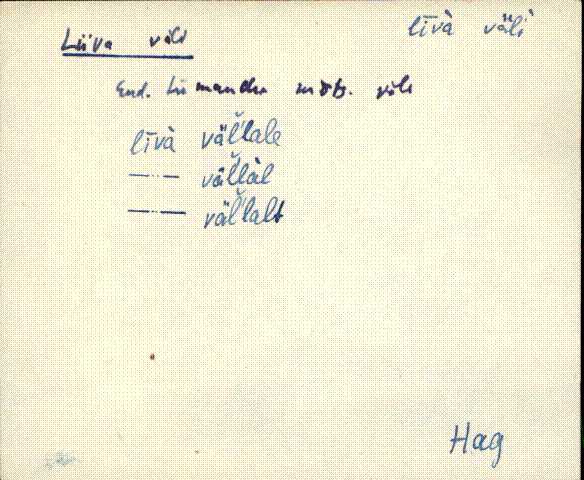 Liiva väli līvà väli
End. Liimandu mõts. väli
līvà väĺ̆lale
—··— väĺ̆làl
—··— väĺ̆lalt
Hag